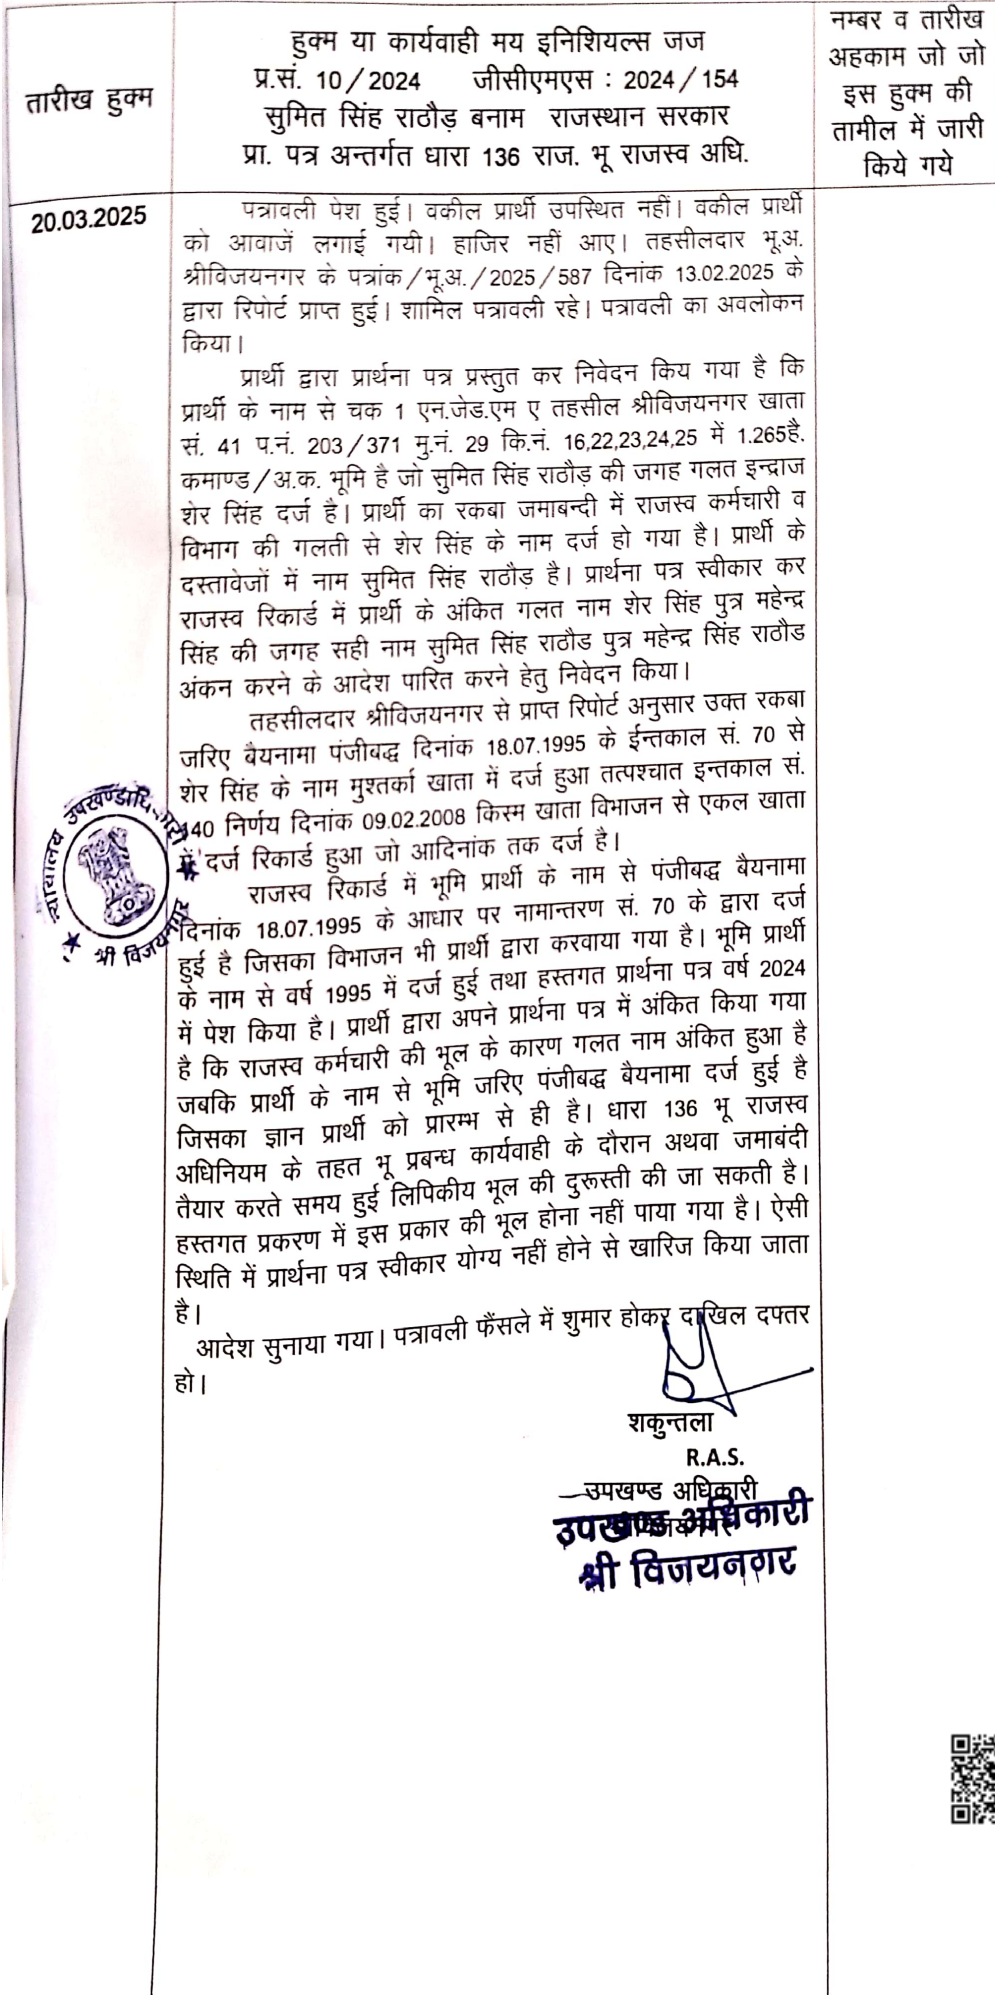 तारीख हुक्म
हुक्म या कार्यवाही मय इनिशियल्स जज
प्र.सं. 10/2024 जीसीएमएस : 2024/154
सुमित सिंह राठौड़ बनाम राजस्थान सरकार
प्रा. पत्र अन्तर्गत धारा 136 राज. भू राजस्व अधि.
नम्बर व तारीख
अहकाम जो जो
इस हुक्म की
तामील में जारी
किये गये
20.03.2025
पत्रावली पेश हुई। वकील प्रार्थी उपस्थित नहीं। वकील प्रार्थी
को आवाजें लगाई गयी। हाजिर नहीं आए। तहसीलदार भू.अ.
श्रीविजयनगर के पत्रांक/भू.अ./2025/587 दिनांक 13.02.2025 के
द्वारा रिपोर्ट प्राप्त हुई। शामिल पत्रावली रहे। पत्रावली का अवलोकन
किया।
प्रार्थी द्वारा प्रार्थना पत्र प्रस्तुत कर निवेदन किय गया है कि
प्रार्थी के नाम से चक 1 एन.जेड.एम ए तहसील श्रीविजयनगर खाता
सं. 41 प.नं. 203/371 मु.नं. 29 कि.नं. 16,22,23,24,25 में 1.265है.
कमाण्ड/अ.क. भूमि है जो सुमित सिंह राठौड़ की जगह गलत इन्द्राज
शेर सिंह दर्ज है। प्रार्थी का रकबा जमाबन्दी में राजस्व कर्मचारी व
विभाग की गलती से शेर सिंह के नाम दर्ज हो गया है। प्रार्थी के
दस्तावेजों में नाम सुमित सिंह राठौड़ है। प्रार्थना पत्र स्वीकार कर
राजस्व रिकार्ड में प्रार्थी के अंकित गलत नाम शेर सिंह पुत्र महेन्द्र
सिंह की जगह सही नाम सुमित सिंह राठौड पुत्र महेन्द्र सिंह राठौड
अंकन करने के आदेश पारित करने हेतु निवेदन किया।
तहसीलदार श्रीविजयनगर से प्राप्त रिपोर्ट अनुसार उक्त रकबा
जरिए बैयनामा पंजीबद्ध दिनांक 18.07.1995 के ईन्तकाल सं. 70 से
शेर सिंह के नाम मुश्तर्का खाता में दर्ज हुआ तत्पश्चात इन्तकाल सं.
140 निर्णय दिनांक 09.02.2008 किस्म खाता विभाजन से एकल खाता
में दर्ज रिकार्ड हुआ जो आदिनांक तक दर्ज है।
राजस्व रिकार्ड में भूमि प्रार्थी के नाम से पंजीबद्ध बैयनामा
दिनांक 18.07.1995 के आधार पर नामान्तरण सं. 70 के द्वारा दर्ज
हुई है जिसका विभाजन भी प्रार्थी द्वारा करवाया गया है। भूमि प्रार्थी
के नाम से वर्ष 1995 में दर्ज हुई तथा हस्तगत प्रार्थना पत्र वर्ष 2024
में पेश किया है। प्रार्थी द्वारा अपने प्रार्थना पत्र में अंकित किया गया
है कि राजस्व कर्मचारी की भूल के कारण गलत नाम अंकित हुआ है
जबकि प्रार्थी के नाम से भूमि जरिए पंजीबद्ध बैयनामा दर्ज हुई है
जिसका ज्ञान प्रार्थी को प्रारम्भ से ही है। धारा 136 भू राजस्व
अधिनियम के तहत भू प्रबन्ध कार्यवाही के दौरान अथवा जमाबंदी
तैयार करते समय हुई लिपिकीय भूल की दुरूस्ती की जा सकती है।
हस्तगत प्रकरण में इस प्रकार की भूल होना नहीं पाया गया है। ऐसी
स्थिति में प्रार्थना पत्र स्वीकार योग्य नहीं होने से खारिज किया जाता
है।
आदेश सुनाया गया। पत्रावली फैंसले में शुमार होकर दाखिल दफ्तर
हो।
न्यायालय उपखण्डाधिकारी
श्री विजयनगर
शकुन्तला
R.A.S.
उपखण्ड अधिकारी
उपखण्ड अधिकारी
श्री विजयनगर